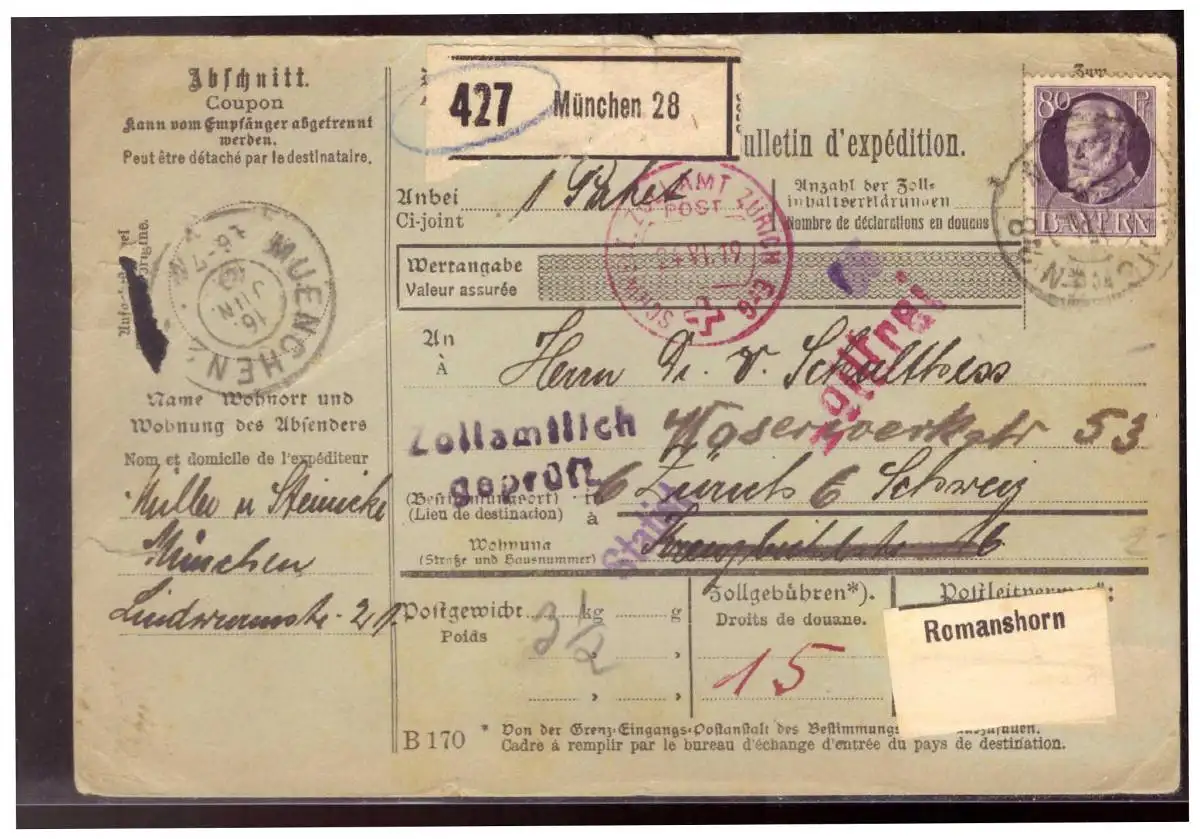 Abschnitt.
Coupon
Kann vom Empfänger abgetrennt
werden.
Peut être détaché par le destinataire.
MUENCHEN
16.
JUN.
6-7
Name Wohnort und
Wohnung des Absenders
Nom et domicile de l'expéditeur
Müller u Steinicke
München
Lindwurmstr. 21.
427 München 28
ulletin d'expédition.
80 Pf
BAYERN
Anbei 1 Paket
Ci-joint
Anzahl der Zoll-
inhaltserklärungen
Nombre de déclarations en douane
ZOLLAMT ZÜRICH
POST
24 VI. 19
Wertangabe
Valeur assurée
zollfrei
An
À
Herrn Dr. v. Schulthess
Zollamtlich
geprüft
Moserwerkstr 53
(Bestimmungsort) in
(Lieu de destination) à
6 Zürich 6 Schweiz
Statist
Wohnung
(Straße und Hausnummer)
16
Postgewicht kg g
Poids
3½
Zollgebühren*).
Droits de douane.
15
Postleitvermerk:
Romanshorn
B 170
* Von der Grenz-Eingangs-Postanstalt des Bestimmungs auszufüllen.
Cadre à remplir par le bureau d'échange d'entrée du pays de destination.